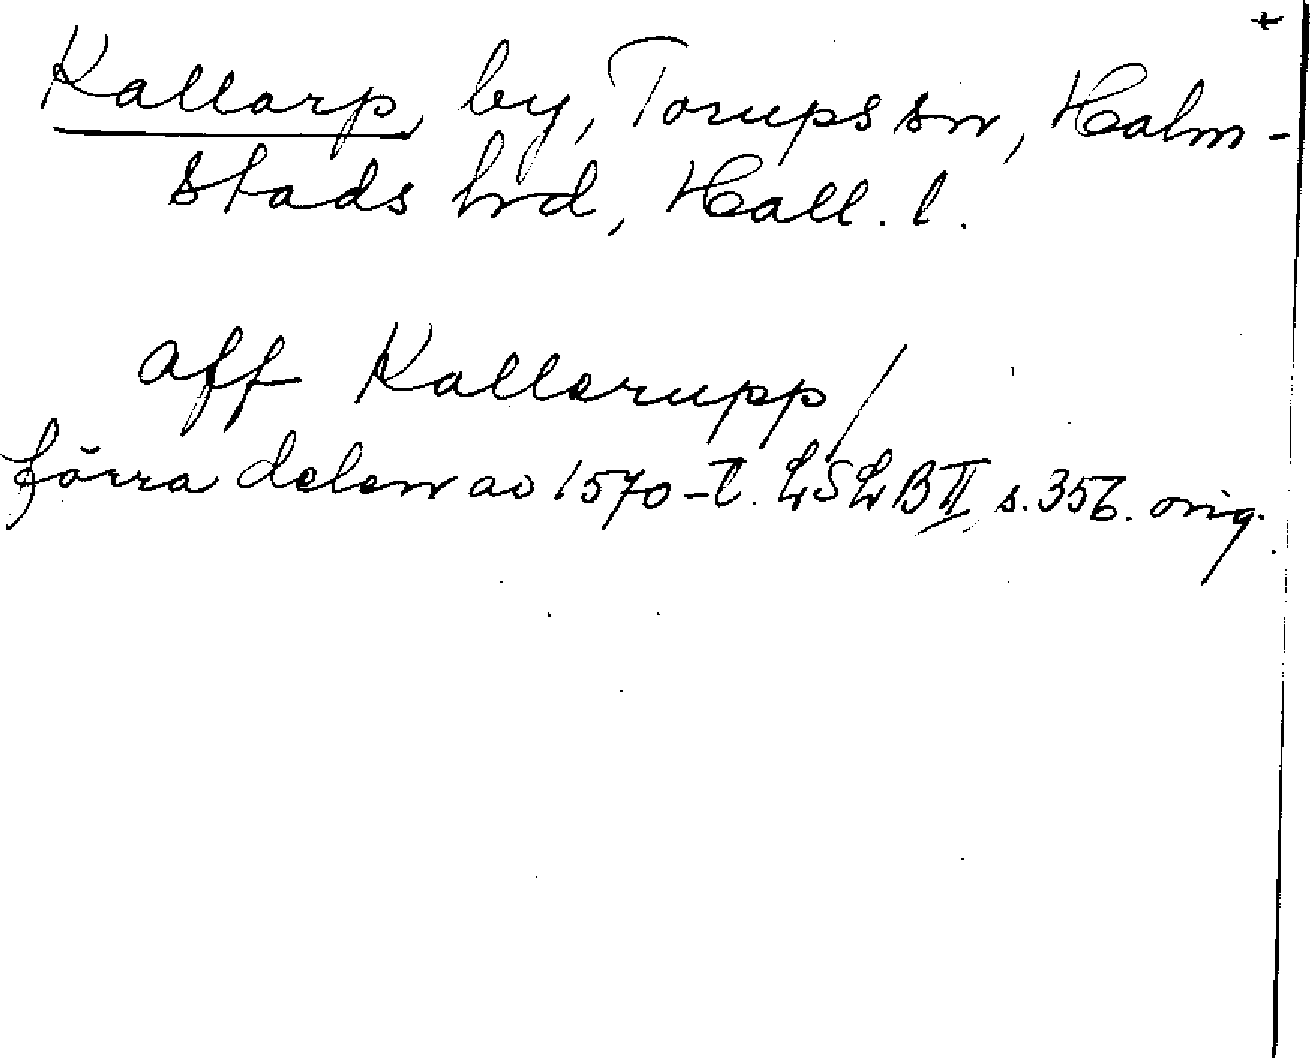 Kallarp, by, Torups sn, Halm-
stads hrd, Hall. l.
aff Kallerupp/
förra delen av 1570-t. LSLB II, s. 356. orig.